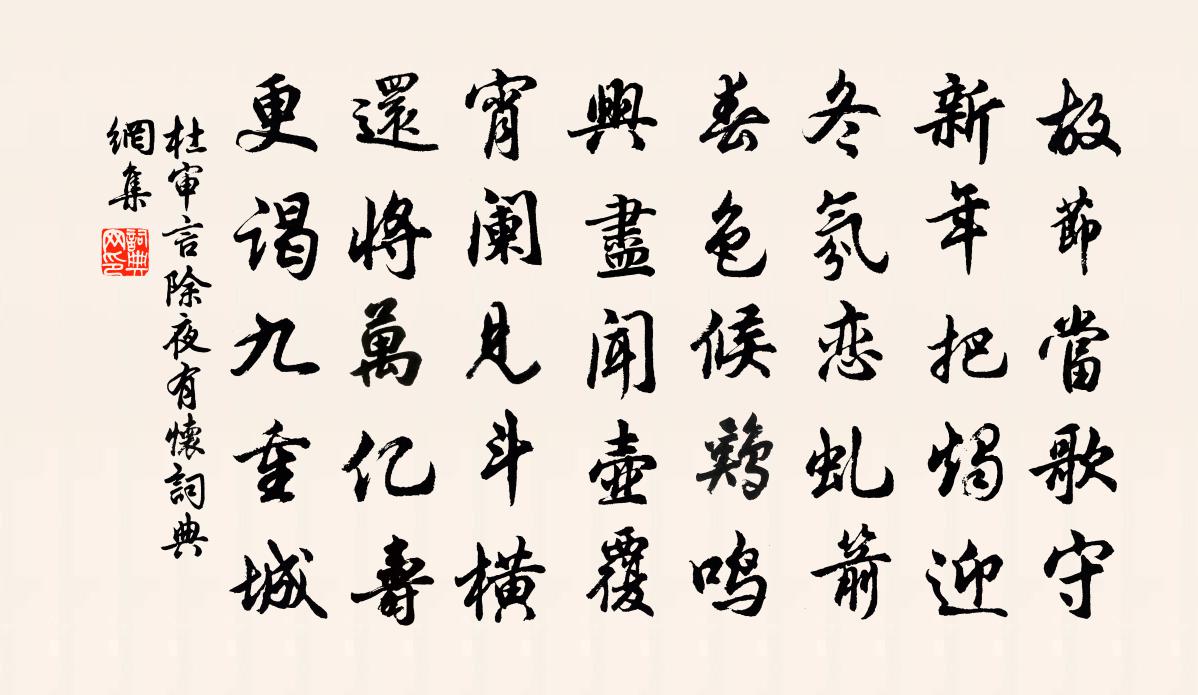 故節當歌守
新年把燭迎
冬氛恋虬箭
春色候鷄鳴
興盡聞壺覆
宵闌見斗橫
還將萬亿壽
更谒九重城
杜审言除夜有懷詞典
網集
詞典网印